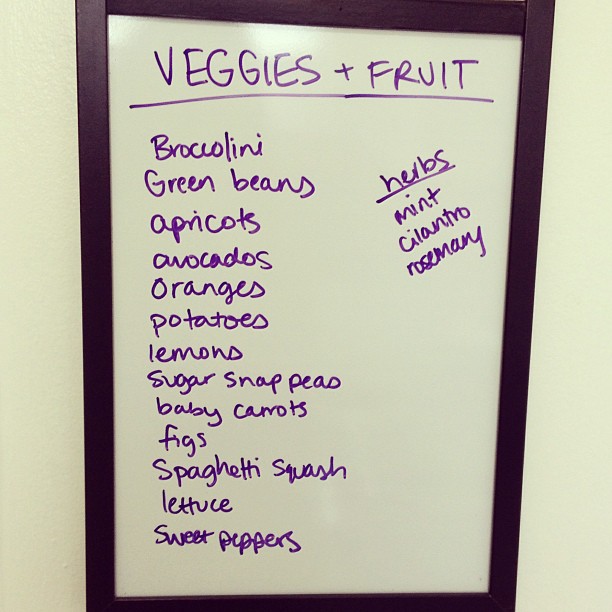 VEGGIES + FRUIT
Broccolini
Green beans
apricots
avocados
oranges
potatoes
lemons
sugar snap peas
baby carrots
figs
Spaghetti Squash
lettuce
Sweet peppers
herbs
mint
cilantro
rosemary